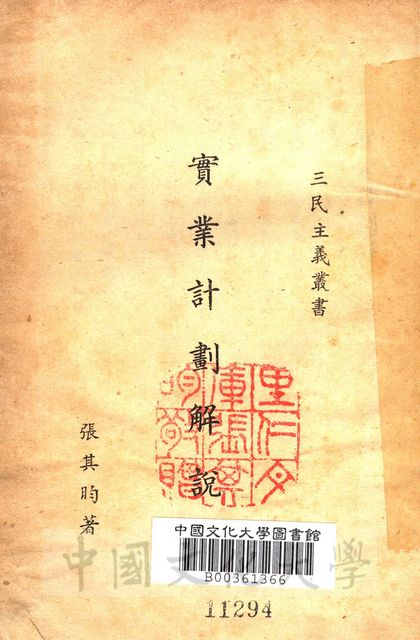 三民主義叢書
實業計劃解說
張其昀著
中國文化大學圖書館
B00361366
中國文化大學
11294